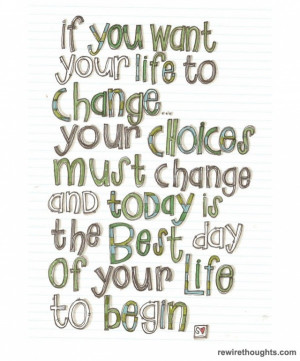 if you want
your life to
change...
your CHOiCES
must change
and today is
the Best day
of your Life
to begin
rewirethoughts.com